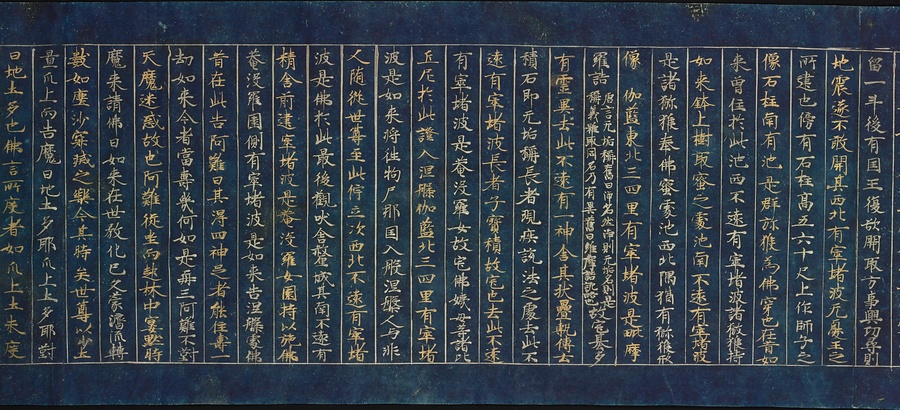 留一年後有国王復欲開取方事興功尋則
地震遂不敢開其西北有窣堵波无憂王之
所建也傍有石柱髙五六十尺上作師子之
像石柱南有池是群弥猴為佛穿也在昔如
来曽住於此池西不遠有窣堵波諸弥猴持
如来鉢上樹取蜜之處池南不遠有窣堵波
是諸弥猴奉佛蜜處池西北隅猶有弥猴形
像 伽藍東北三四里有窣堵波是毗摩
羅詰
唐言无垢稱舊曰浄名然浄則无垢名則是
稱義雖取同名乃有異舊曰維摩詰訛略
故宅基多
有霊異去此不遠有一神舎其狀疊甎傳云
積石即无垢稱長者現疾說法之處去此不
遠有窣堵波長者子寶積故宅也去此不遠
有窣堵波是菴没羅女故宅佛姨母等諸苾
丘尼於此證入涅槃伽藍北三四里有窣堵
波是如来将往拘尸那国入般涅槃人与非
人随従世尊至此佇立次西北不遠有窣堵
波是佛於此最後觀吠舎釐城其南不遠有
精舎前建窣堵波是菴没羅女園持以施佛
菴没羅園側有窣堵波是如来告涅槃處佛
昔在此告阿難曰其得四神足者能住壽一
劫如来今者當尊幾何如是再三阿難不對
天魔迷惑故也阿難従坐而起林中宴黙時
魔来請佛曰如来在世教化已久蒙濟流轉
數如塵沙寂滅之樂今其時矣世尊以少土
置爪上而告魔曰地土多耶爪上土多耶對
曰地土多也佛言所度者如爪上土未度